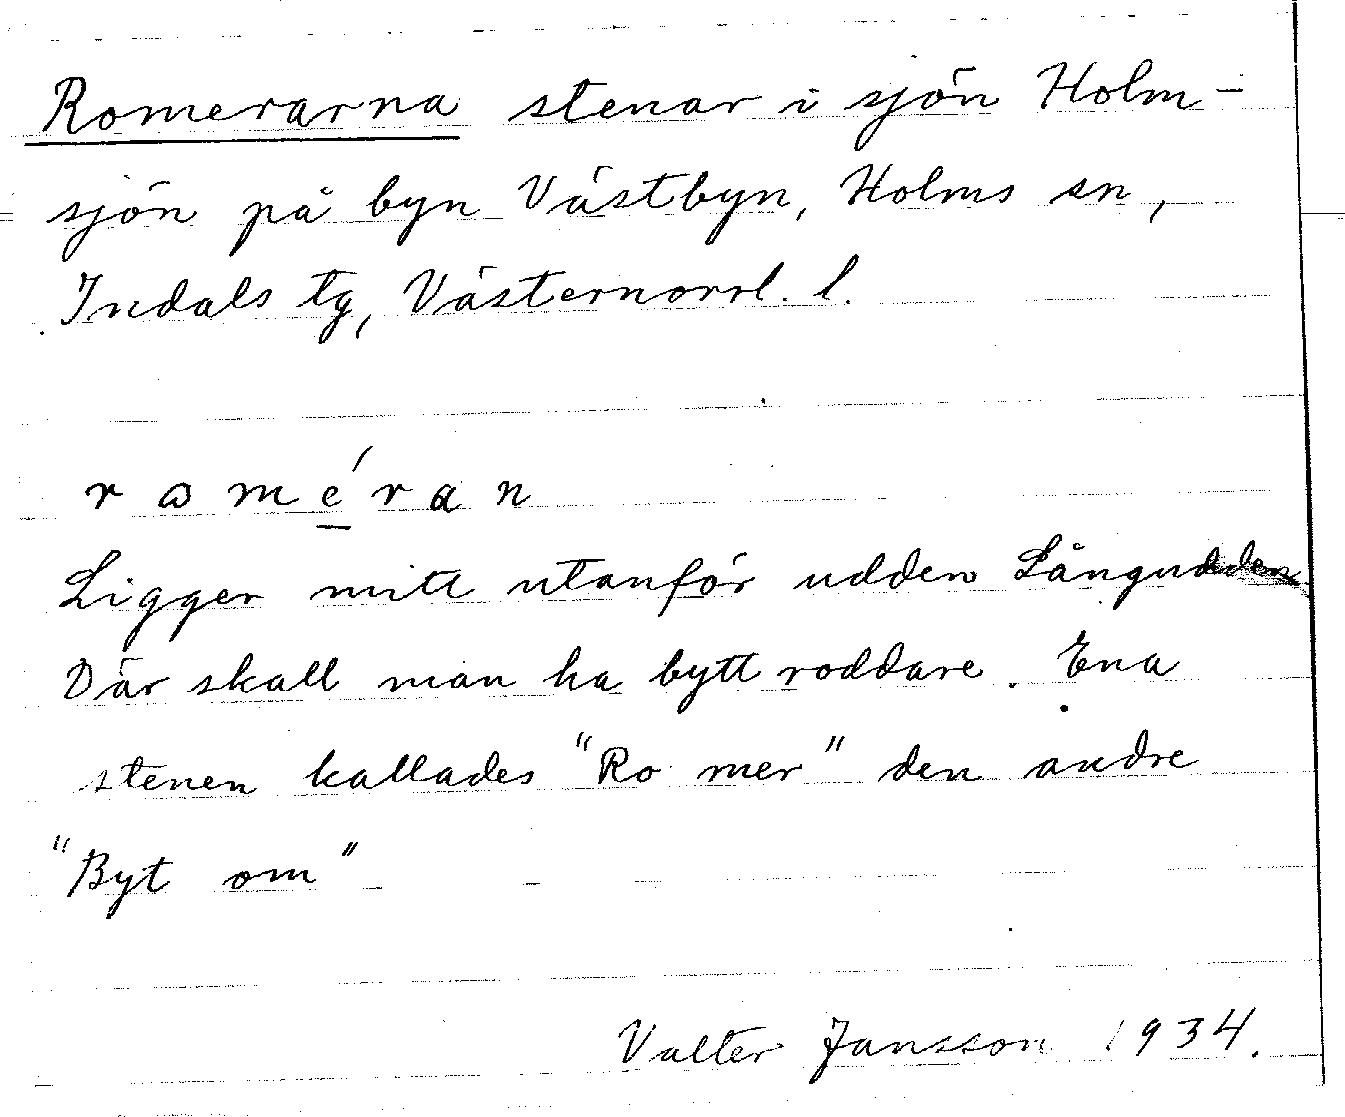 Romerarna stenar i sjön Holm-
sjön på byn Västbyn, Holms sn,
Indals tg, Västernorrl. l.
roméran
Ligger mitt utanför udden Långudden
Där skall man ha bytt roddare. Ena
stenen kallades "Ro mer" den andre
"Byt om"
Valter Jansson 1934.